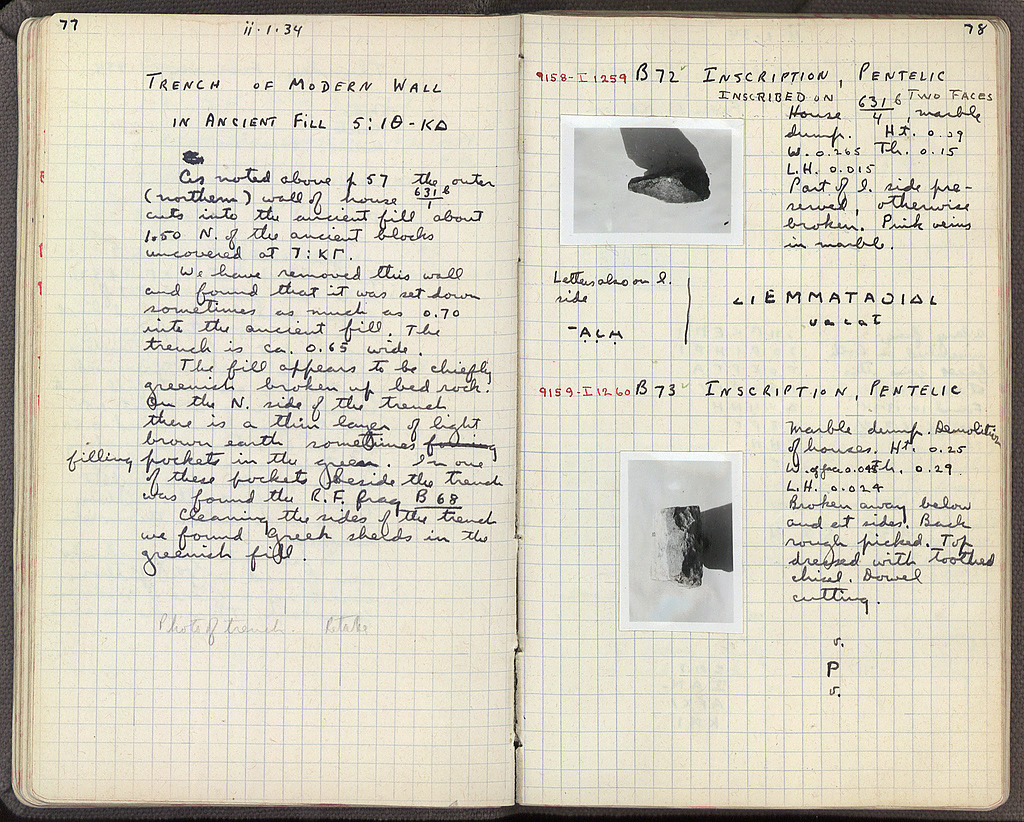 77
ii.1.34
TRENCH OF MODERN WALL
IN ANCIENT FILL 5:ΙΘ-ΚΔ
As noted above p 57 the outer
(northern) wall of house 631b/1
cuts into the ancient fill about
1.50 N. of the ancient blocks
uncovered at 7:ΚΓ.
We have removed this wall
and found that it was set down
sometimes as much as 0.70
into the ancient fill. The
trench is ca. 0.65 wide.
The fill appears to be chiefly
greenish broken up bed rock.
On the N. side of the trench
there is a thin layer of light
brown earth sometimes
filling pockets in the green. In one
of these pockets beside the trench
was found the R.F. frag B 68
Cleaning the sides of the trench
we found Greek sherds in the
greenish fill.
Photo of trench. Retake
78
9158-I 1259 B 72 INSCRIPTION, PENTELIC
INSCRIBED ON TWO FACES
House 631b/4, marble
dump. Ht. 0.29
W. 0.265 Th. 0.15
L.H. 0.015
Part of l. side pre-
served, otherwise
broken. Pink veins
in marble.
Letters also on l.
side
ΑLΗ
ΙΕΜΜΑΤΑ
vacat
9159-I 1260 B 73 INSCRIPTION, PENTELIC
Marble dump. Demolition
of houses. Ht. 0.25
W. of face 0.045 Th. 0.29
L.H. 0.024
Broken away below
and at sides. Back
rough picked. Top
dressed with toothed
chisel. Dowel
cutting.
v.
P
v.